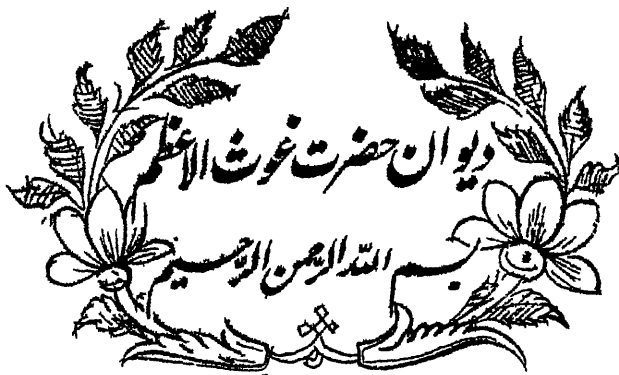 دیوان حضرت غوث الاعظم
بسم الله الرحمن الرحیم